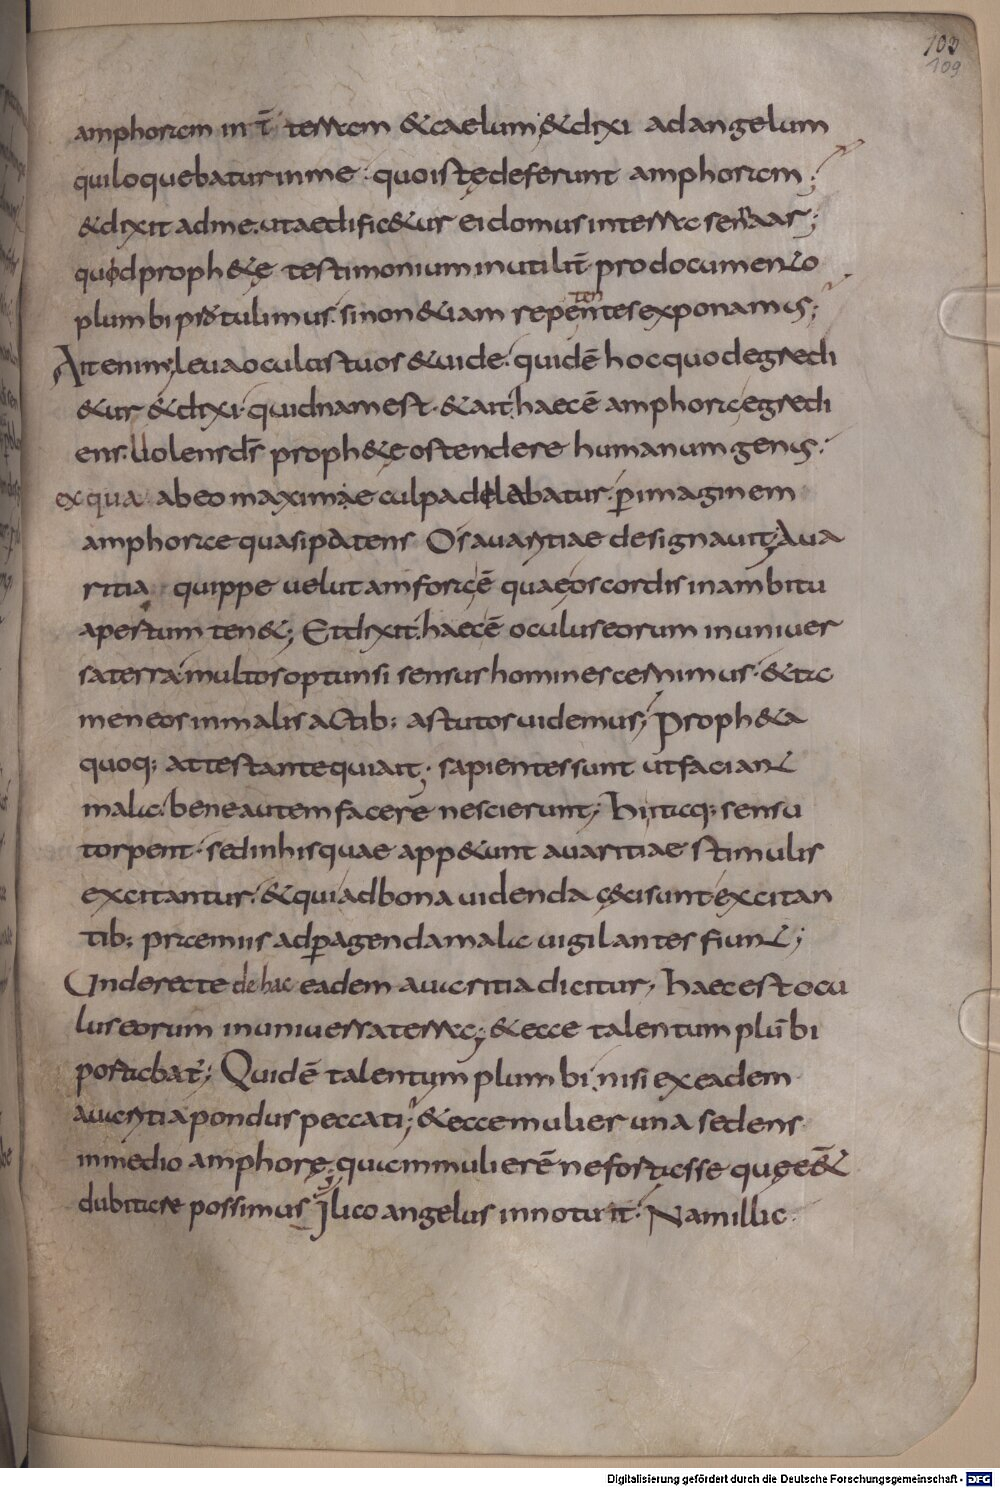 102
109
amphoram int̄ terram &caelum; &dixi adangelum
quiloquebaturinme· quoistędeferunt amphoram;
&dixit adme. utaedific&ur ei domus interra sennaar;
quod proph&ę testimonium inutilit̄ pro documento
plumbi ptulimus. sinon &iam repentes exponamus;
ten
Ait enim; leuaoculostuos &uide· quidē hoc quodegredi
&ur &dixi· quidnamest· &ait; haecē amphora egredi
ens. Uolens dr̄ proph&ę ostendere humanum genus·
ex qua abeo maximae culpa delabatur· p̄ imaginem
amphorae quasi patens Os auaritiae designauit; Aua
ritia quippe uelut amforaē quaeoscordis inambitu
apertum ten&; Etdixit; haecē oculus eorum inuniuer
saterra· multos optunsi sensus homines cernimus· &ta
men eos inmalis actib; astutos uidemus; Proph&a
quoq; attestante quiait; sapientes sunt ut faciant
mala· bene autem facere nescierunt; Hi itaq; sensu
torpent· sed inhis quae app&unt auaritiae stimulis
excitantur· &qui adbona uidenda cęci sunt· excitan
tib; praemiis adp̄agenda mala uigilantes fiunt;
Unde recte de hac eadem auaritia dicitur; haec est ocu
lus eorum inuniuersa terra; &ecce talentum plūbi
portabat̄; Quidē talentum plumbi; nisi ex eadem
auaritia pondus peccati; &ecce mulier una sedens
in medio amphorę; quam mulierē ne fortasse quęē&
dubitare possimus; Ilico angelus innotuit· Nam illic
Digitalisierung gefördert durch die Deutsche Forschungsgemeinschaft - DFG